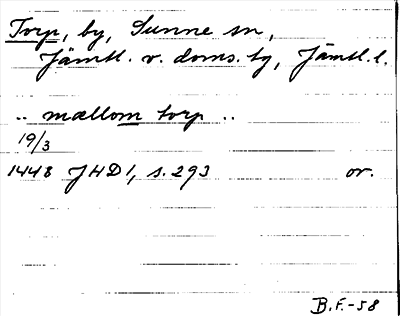 Torp, by, Sunne sn,
Jämtl. v. doms. tg, Jämtl. l.
.. mællom torp ..
19/3
1448 JHD1, s. 293 or.
B.F.-58